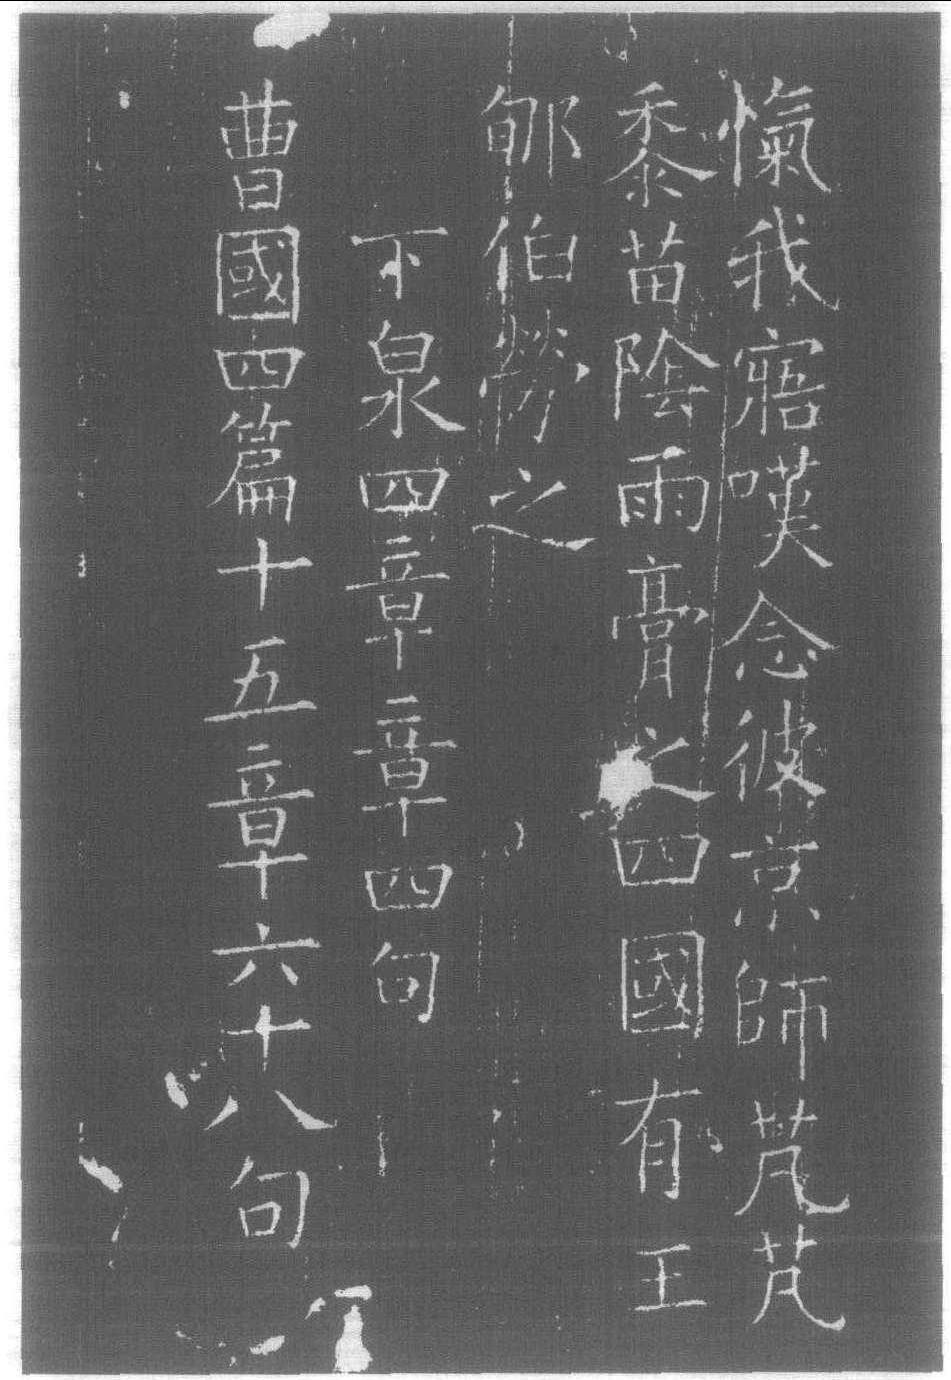 愾我寤嘆念彼京師芃芃
黍苗陰雨膏之四國有王
郇伯勞之
下泉四章章四句
曹國四篇十五章六十八句